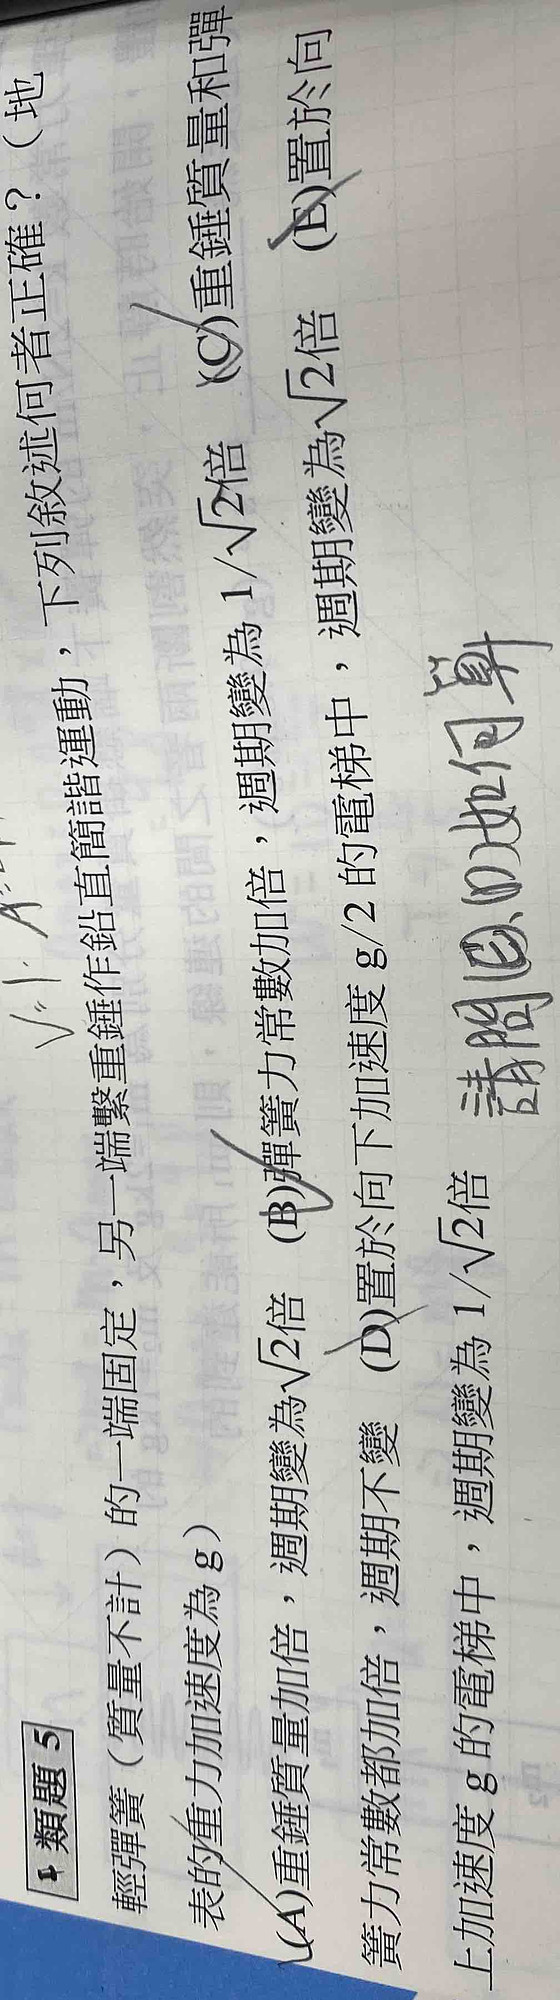 類題 5
輕彈簧（質量不計）的一端固定，另一端繫重錘作鉛直簡諧運動，下列敘述何者正確？（地
表的重力加速度為 g）
(A)重錘質量加倍，週期變為√2倍 (B)彈簧力常數加倍，週期變為 1/√2倍 (C)重錘質量和彈
簧力常數都加倍，週期不變 (D)置於向下加速度 g/2 的電梯中，週期變為√2倍 (E)置於向
上加速度 g 的電梯中，週期變為 1/√2倍
請問 (D)如何算